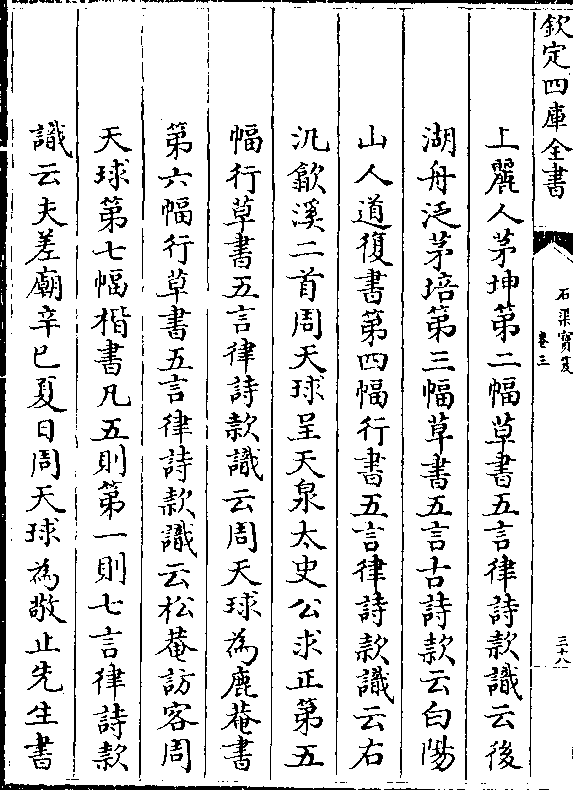 欽定四庫全書
石渠寶笈
卷三
三十八
上麗人茅坤第二幅草書五言律詩款識云後
湖舟泛茅培第三幅草書五言古詩款云白陽
山人道復書第四幅行書五言律詩款識云右
汎歙溪二首周天球呈天泉太史公求正第五
幅行草書五言律詩款識云周天球為鹿菴書
第六幅行草書五言律詩款識云松菴訪客周
天球第七幅楷書凡五則第一則七言律詩款
識云夫差廟辛巳夏日周天球為敬止先生書